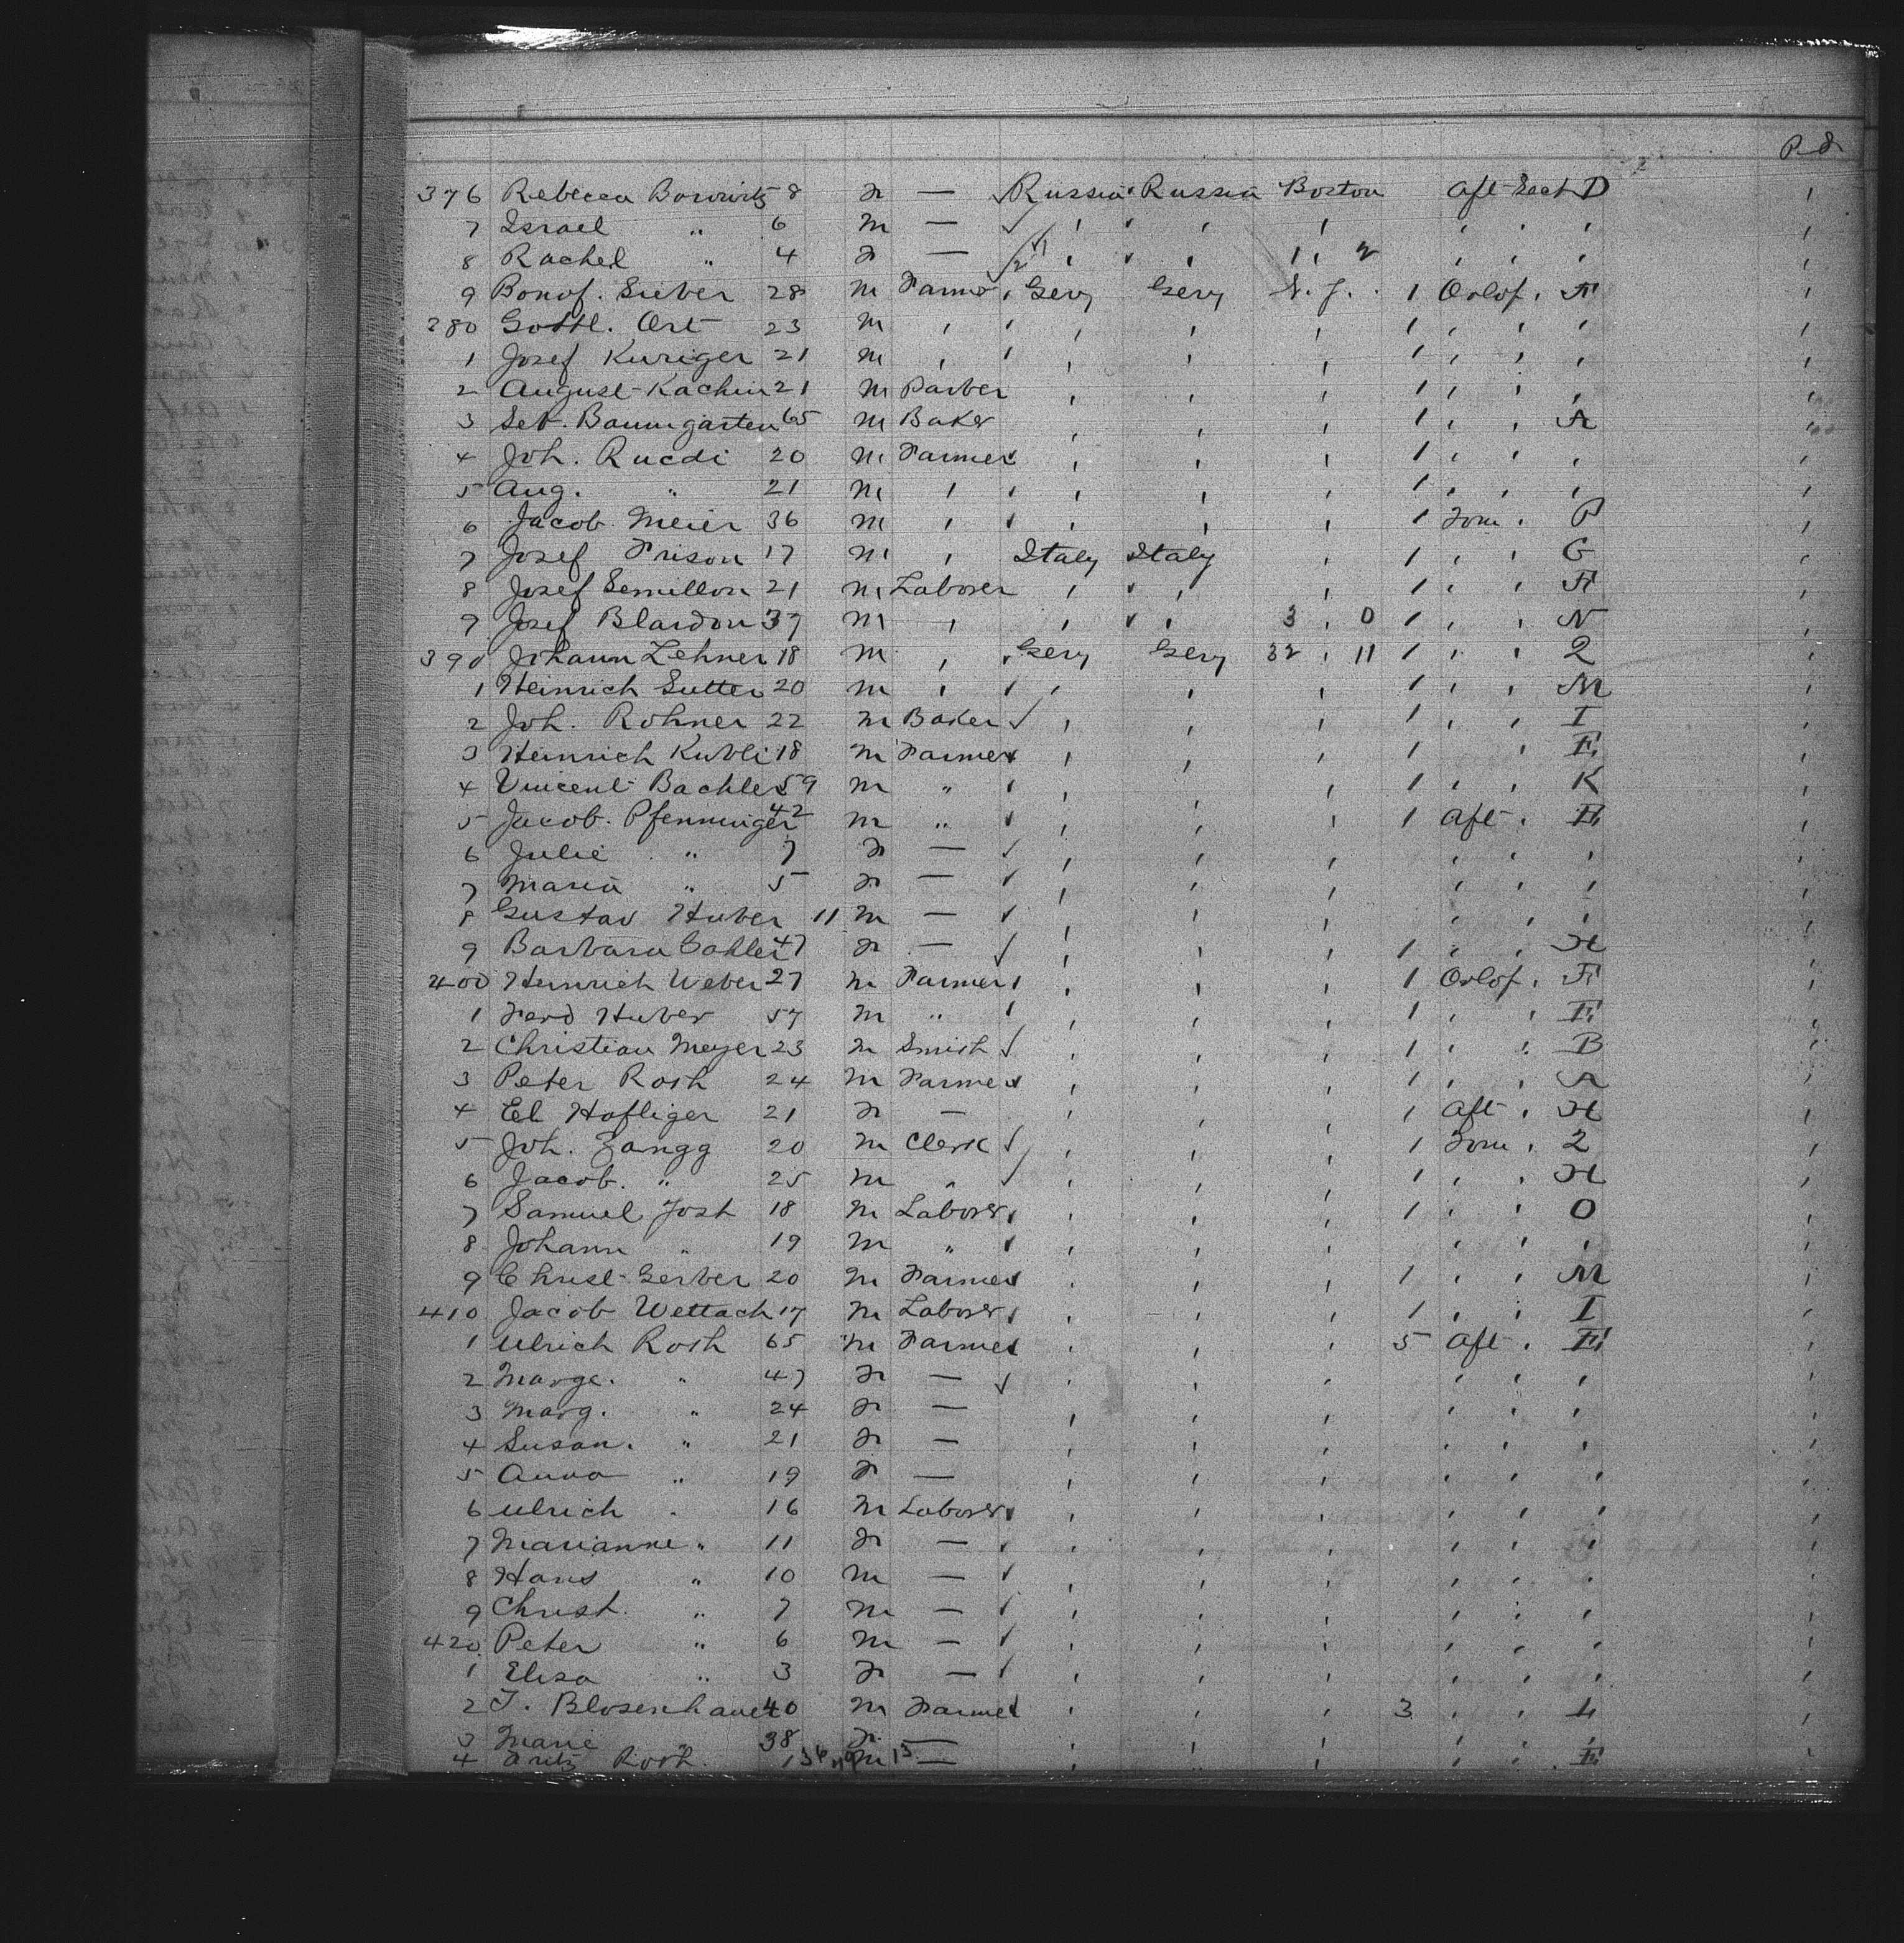 P. S.
376 Rebecca Borwitz 8 F — Russia Russia Boston Aft Sect D
7 Israel " 6 M — " " "
8 Rachel " 4 F — " " "
9 Bonof. Sieber 28 M Farmer Gery Gery N.J. 1 Orlof. F
280 Gottl. Ort 23 M " " " " 1 " "
1 Josef Kuriger 21 M " " " " 1 " "
2 August Kachin 21 M Barber " " " 1 " "
3 Seb. Baumgarten 65 M Baker " " " 1 " " A
4 Joh. Ruedi 20 M Farmer " " " 1 " "
5 Aug. " 21 M " " " " 1 " "
6 Jacob Meier 36 M " " " " 1 Tom. P
7 Josef Frison 17 M " Italy Italy " 1 " " G
8 Josef Semillon 21 M Laborer " " " 1 " " F
9 Josef Blardon 37 M " " " 3 0 1 " " N
390 Johann Lehner 18 M " Gery Gery 32 11 1 " " 2
1 Heinrich Sutter 20 M " " " " 1 " " M
2 Joh. Rohner 22 M Baker " " " 1 " " I
3 Heinrich Kubli 18 M Farmer " " " 1 " E
4 Vincent Bachler 59 M " " " " 1 " " K
5 Jacob. Pfenninger 42 M " " " " 1 Aft. E
6 Julie " 7 F — " " "
7 Maria " 5 F — " " "
8 Gustav Huber 11 M — " " "
9 Barbara Cohler 47 F — " " " 1 " " H
400 Heinrich Weber 27 M Farmer " " " 1 Orlof. F
1 Ferd Huber 57 M " " " " 1 " " E
2 Christian Meyer 23 M Smith " " " 1 " " B
3 Peter Roth 24 M Farmer " " " 1 " " A
4 El Hofliger 21 F — " " " 1 Aft. H
5 Joh. Zangg 20 M Clerk " " " 1 Tom. 2
6 Jacob. " 25 M " " " " 1 " " H
7 Samuel Jost 18 M Laborer " " " 1 " " O
8 Johann " 19 M " " " " " "
9 Christ Gerber 20 M Farmer " " " 1 " " M
410 Jacob Wettach 17 M Laborer " " " 1 " " I
1 Ulrich Roth 65 M Farmer " " " 5 Aft. E
2 Marga. " 47 F — " " "
3 Marg. " 24 F — " " "
4 Susan. " 21 F — " " "
5 Anna " 19 F — " " "
6 Ulrich " 16 M Laborer " " "
7 Marianne " 11 F — " " "
8 Hans " 10 M — " " "
9 Christ. " 7 M — " " "
420 Peter " 6 M — " " "
1 Elisa " 3 F — " " "
2 J. Blosenhauer 40 M Farmer " " " 3 " " L
3 Marie " 38 F — " " "
4 Fritz Roth. M — " " " E